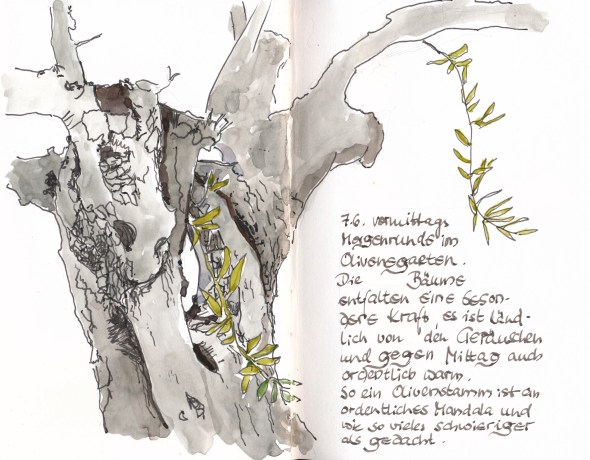 7.6. vormittags
Morgenrunde im
Olivengarten.
Die Bäume
entfalten eine beson-
dere Kraft, es ist länd-
lich von den Geräuschen
und gegen Mittag auch
ordentlich warm.
So ein Olivenstamm ist ein
ordentliches Mandala und
wie so vieles schwieriger
als gedacht.